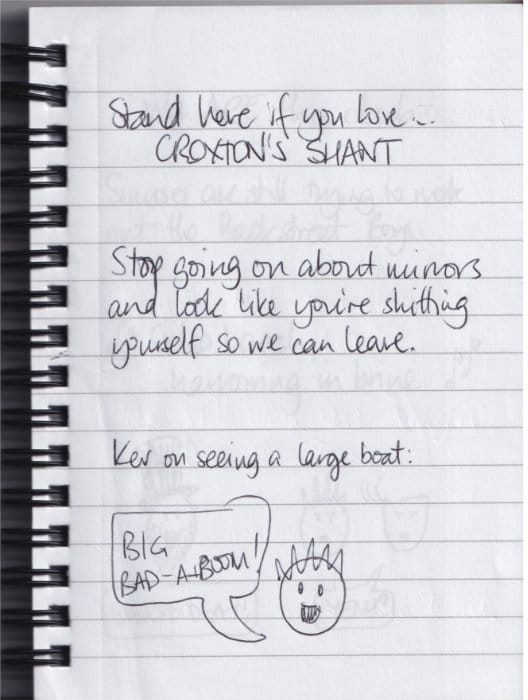 Stand here if you love...
CROXTON'S SHANT
Stop going on about minors
and look like you're shitting
yourself so we can leave.
Kev on seeing a large boat:
BIG
BAD-A-BOOM!